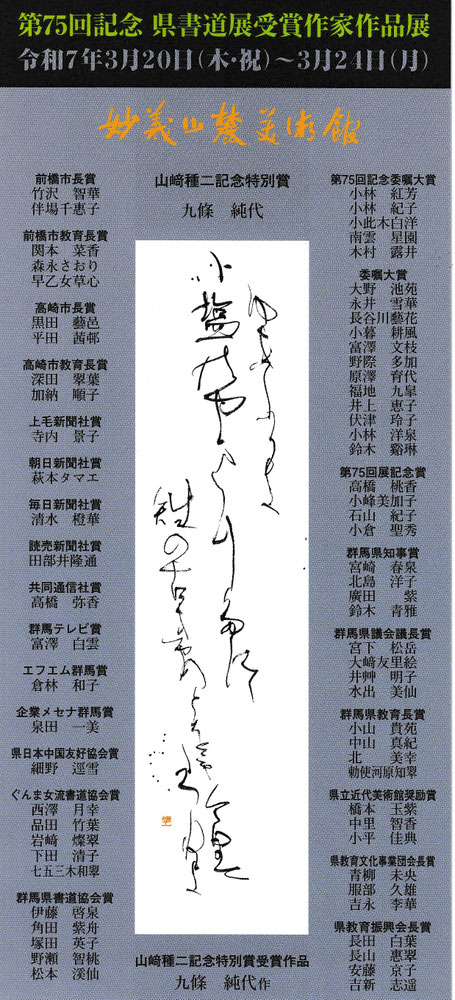 第75回記念 県書道展受賞作家作品展
令和7年3月20日(木・祝)～3月24日(月)
妙義山麓美術館
前橋市長賞
竹沢 智華
伴場千惠子
前橋市教育長賞
関本 菜香
森永さおり
早乙女草心
高崎市長賞
黒田 藝邑
平田 茜邨
高崎市教育長賞
深田 翠葉
加納 順子
上毛新聞社賞
寺内 景子
朝日新聞社賞
萩本タマエ
毎日新聞社賞
清水 橙華
読売新聞社賞
田部井隆通
共同通信社賞
高橋 弥香
群馬テレビ賞
富澤 白雲
エフエム群馬賞
倉林 和子
企業メセナ群馬賞
泉田 一美
県日本中国友好協会賞
細野 逕雪
ぐんま女流書道協会賞
西澤 月幸
品田 竹葉
岩﨑 燦翠
下田 清子
七五三木和翠
群馬県書道協会賞
伊藤 啓泉
角田 紫舟
塚田 英子
野瀬 智桃
松本 渓仙
山﨑種二記念特別賞
九條 純代
山﨑種二記念特別賞受賞作品
九條 純代作
第75回記念委嘱大賞
小林 紅芳
小林 紀子
小此木白洋
南雲 星園
木村 露井
委嘱大賞
大野 池苑
永井 雪華
長谷川藝花
小暮 耕風
富澤 文枝
野際 多加
原澤 育代
福地 九皐
井上 恵子
伏津 玲子
小林 洋泉
鈴木 谿琳
第75回展記念賞
高橋 桃香
小峰美加子
石山 紀子
小倉 聖秀
群馬県知事賞
宮崎 春泉
北島 洋子
廣田 紫
鈴木 青雅
群馬県議会議長賞
宮下 松岳
大﨑友里絵
井艸 明子
水出 美仙
群馬県教育長賞
小山 貴苑
中山 真紀
北 美幸
勅使河原知翠
県立近代美術館奨励賞
橋本 玉紫
中里 智香
小平 佳典
県教育文化事業団会長賞
青柳 未央
服部 久雄
吉永 李華
県教育振興会長賞
長田 白葉
長山 惠翠
安藤 京子
吉新 志遥